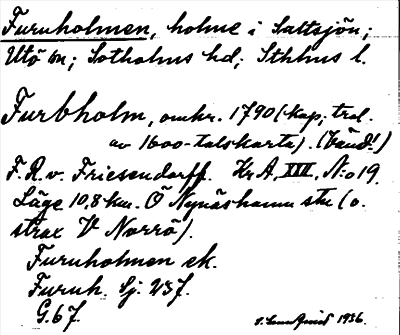 Furuholmen, holme i Saltsjön;
Utö sn; Sotholms hd; Sthlms l.
Furbholm, omkr. 1790 (kop. trol.
av 1600-talskarta). (bänd!)
F. R. v. Friesendorff. Kr A, XIII, N:o 19.
Läge 10,8 km. Ö Nynäshamn stn (o.
strax V Norrö).
Furuholmen ek.
Furuh. Sj. 237.
G. 67.
1936.